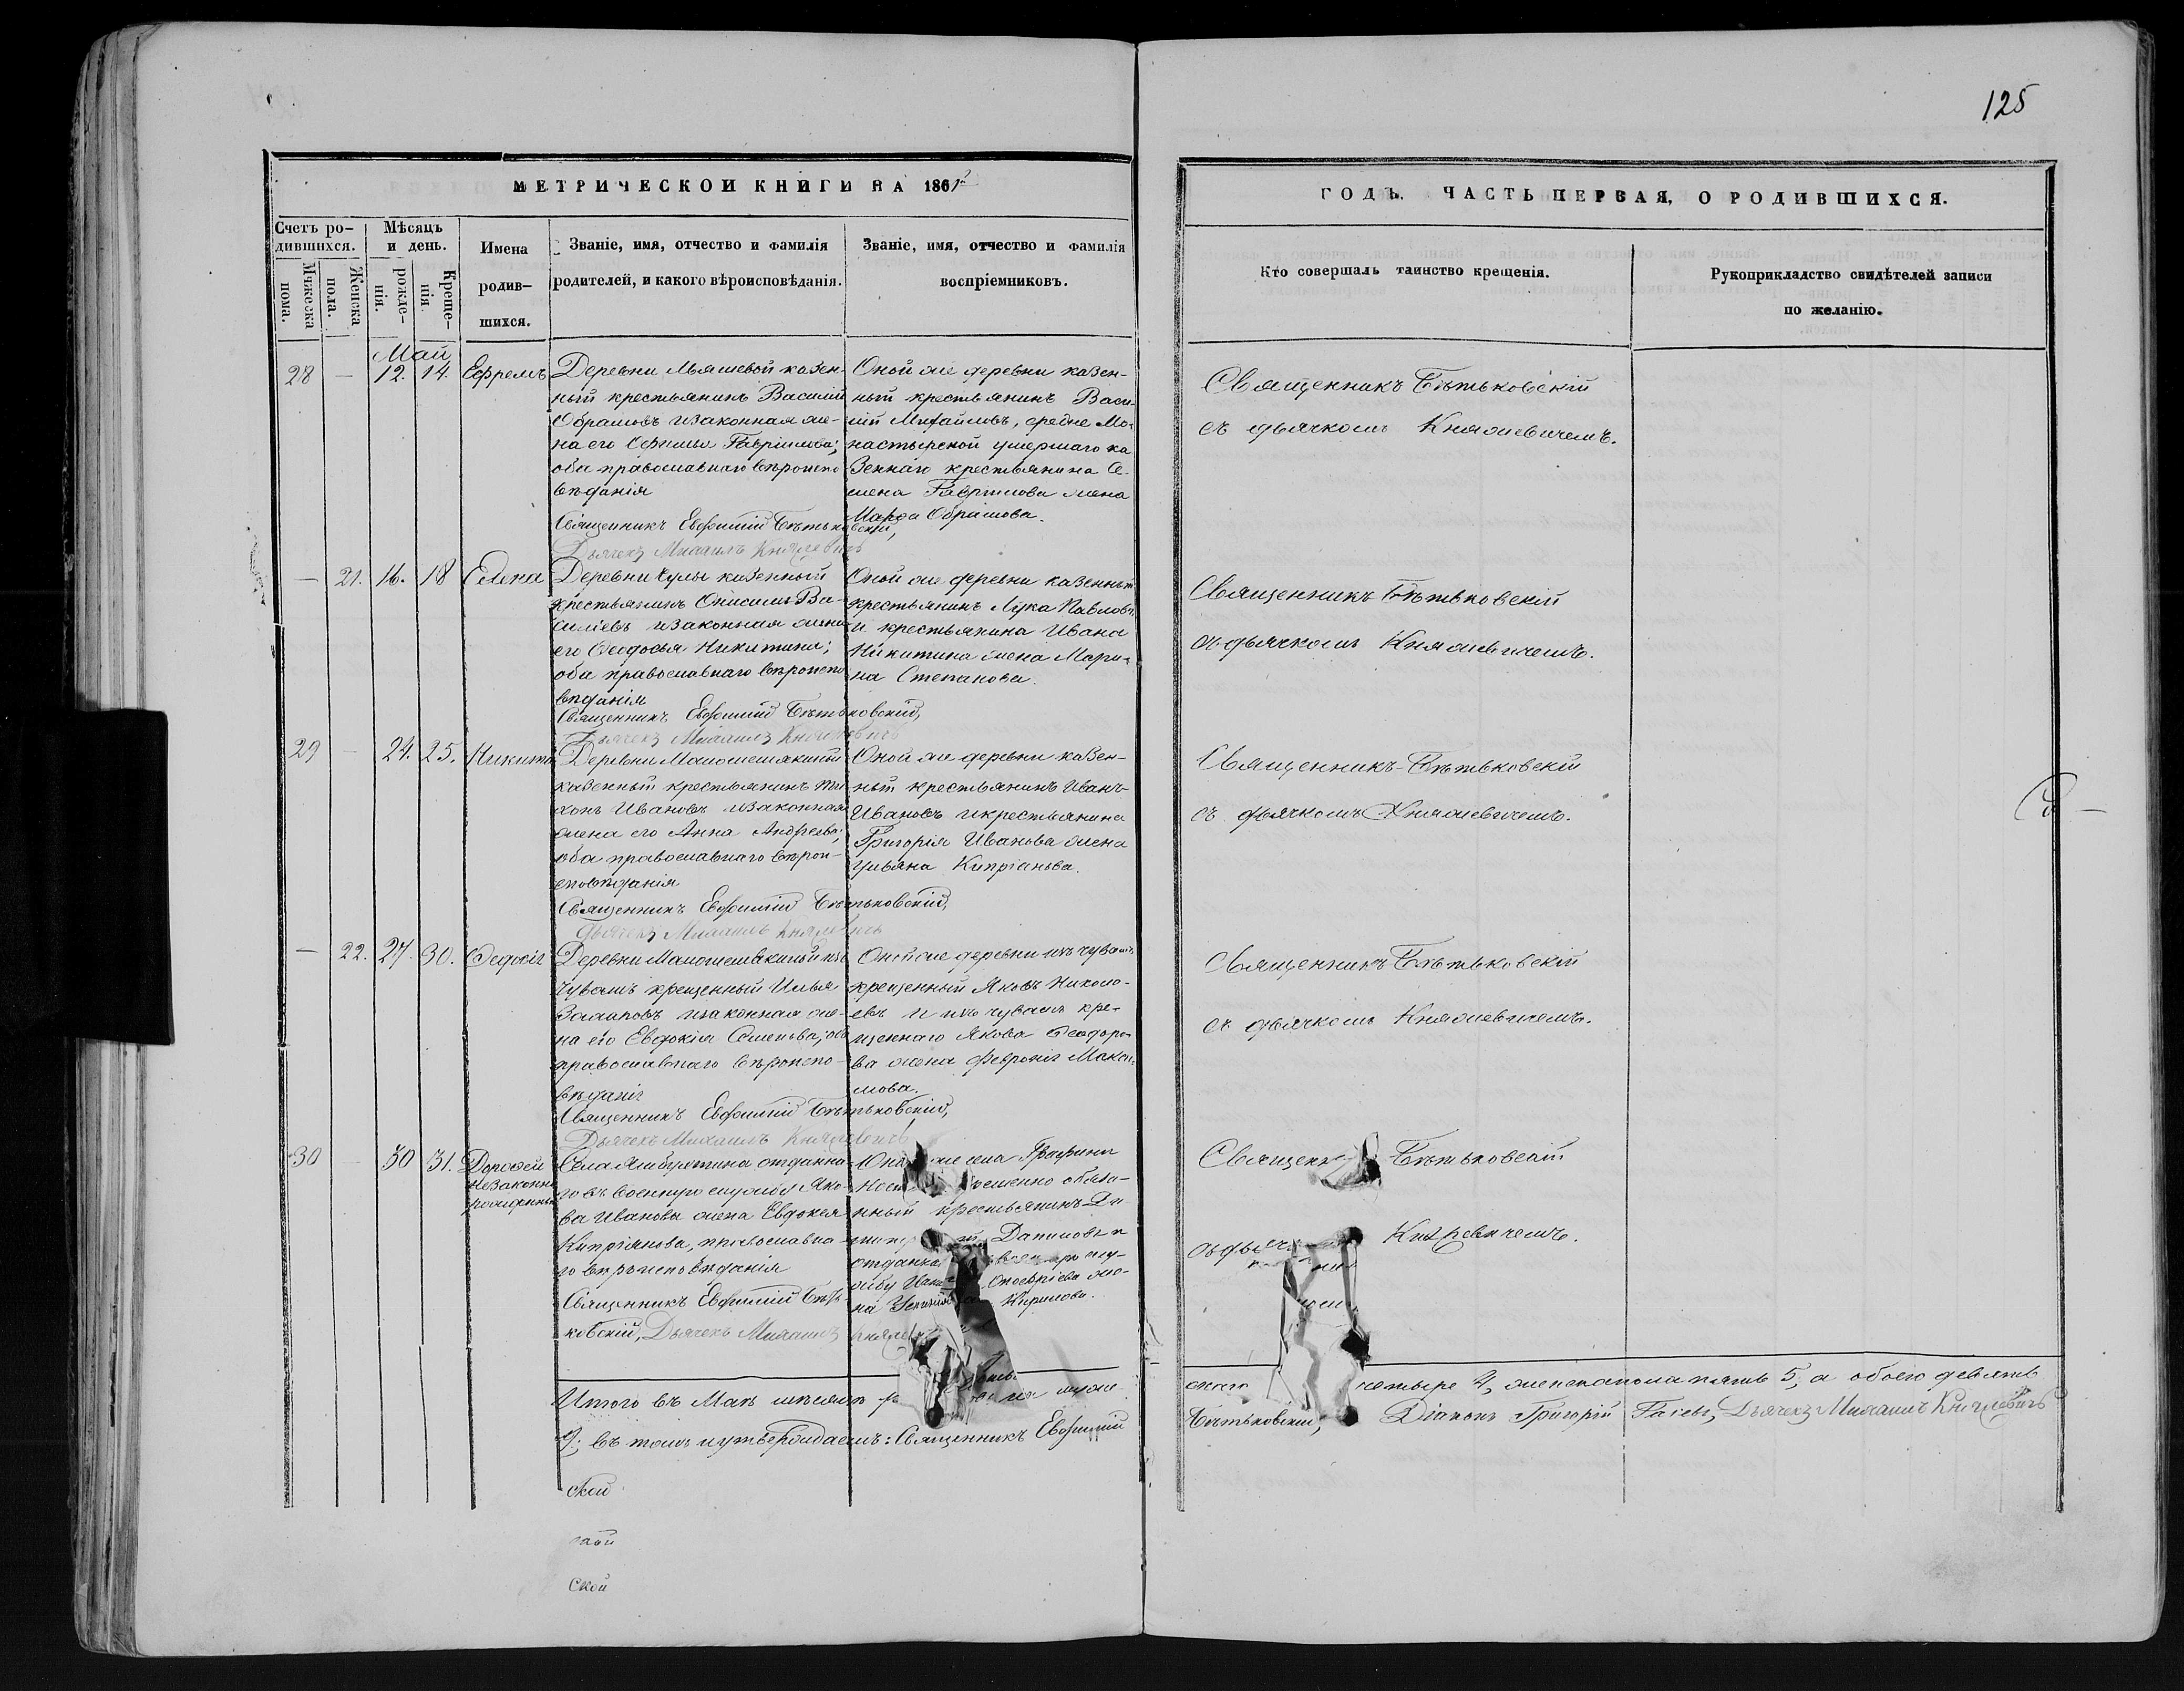 125
МЕТРИЧЕСКОЙ КНИГИ НА 1861й
ГОДЪ. ЧАСТЬ ПЕРВАЯ, О РОДИВШИХСЯ.
Счетъ ро-
дившихся.
Мужеска
пола.
Женска
пола.
Мѣсяцъ
и день.
рожде-
нія.
Креще-
нія
Имена
родив-
шихся.
Званіе, имя, отчество и фамилія
родителей, и какого вѣроисповѣданія.
Званіе, имя, отчество и фамилія
воспріемниковъ.
Кто совершалъ таинство крещенія.
Рукоприкладство свидѣтелей записи
по желанію.
Май
28 — 12. 14. Ефремъ
Деревни казен-
ный крестьянинъ Василій
Обрамовъ и законная же-
на его Гавріилова;
оба православнаго вѣроиспо
вѣданія
Священникъ Евфимій Бѣтьковскій,
Дьячекъ Михаилъ Княжевичъ
Оной же деревни казен-
ный крестьянинъ Васи-
лій Михайловъ, средне Мо-
настырской умершаго ка
зеннаго крестьянина Се-
мена Гавриилова жена
Обрамова.
Священникъ Бѣтьковскій
съ дьячкомъ Княжевичемъ.
— 21. 16. 18 Елена
Деревни казенный
крестьянинъ Онисимъ Ва-
силіевъ и законная жена
его Феодосья Никитина;
оба православнаго вѣроиспо
вѣданія
Священникъ Евфимій Бѣтьковскій,
Дьячекъ Михаилъ Княжевичъ
Оной же деревни казенный
крестьянинъ Лука Павловъ
и крестьянина Ивана
Никитина жена Мари-
на Степанова.
Священникъ Бѣтьковскій
съ дьячкомъ Княжевичемъ.
29 — 24. 25. Никита
Деревни
казенный крестьянинъ Ти
хонъ Ивановъ и законная
жена его Анна Андреева;
оба православнаго вѣрои-
сповѣданія
Священникъ Евфимій Бѣтьковскій,
Дьячекъ Михаилъ Княжевичъ
Оной же деревни казен-
ный крестьянинъ Иванъ
Ивановъ и крестьянина
Григорія Иванова жена
Ульяна Кипріанова.
Священникъ Бѣтьковскій
съ дьячкомъ Княжевичемъ.
— 22. 27. 30. Феодосія
Деревни изъ
чувашъ крещенный Илья
и законная же-
на его Евдокія Семенова, оба
православнаго вѣроиспо-
вѣданія
Священникъ Евфимій Бѣтьковскій,
Дьячекъ Михаилъ Княжевичъ
Оной же деревни изъ чувашъ
крещенный Яковъ Николо-
евъ и изъ чувашъ кре-
щеннаго Якова Феодоро-
ва жена Февронія Макси-
мова.
Священникъ Бѣтьковскій
съ дьячкомъ Княжевичемъ.
30 30 31. Дорофей
незаконно
рожденный
Села отданна
го въ военную службу Яко-
ва Иванова жена Евдокея
Кипріянова, православна-
го вѣроисповѣданія
Священникъ Евфимій Бѣть-
ковскій, Дьячекъ Михаилъ Княжев
же села Графини
временно обяза-
нный крестьянинъ Ди
Даниловъ и
отданна
жбу жо-
на Кирилова.
Священ Бѣтьковскій
съ дьяч Княжевичемъ.
Итого въ Маѣ мѣсяцѣ муже
ска четыре 4, женска пола пять 5, а обоего девять
9; въ томъ и утверждаемъ: Священникъ Евфимій
Бѣтьковскій, Діаконъ Григорій Дьячекъ Михаилъ Княжевичъ
ской
ской